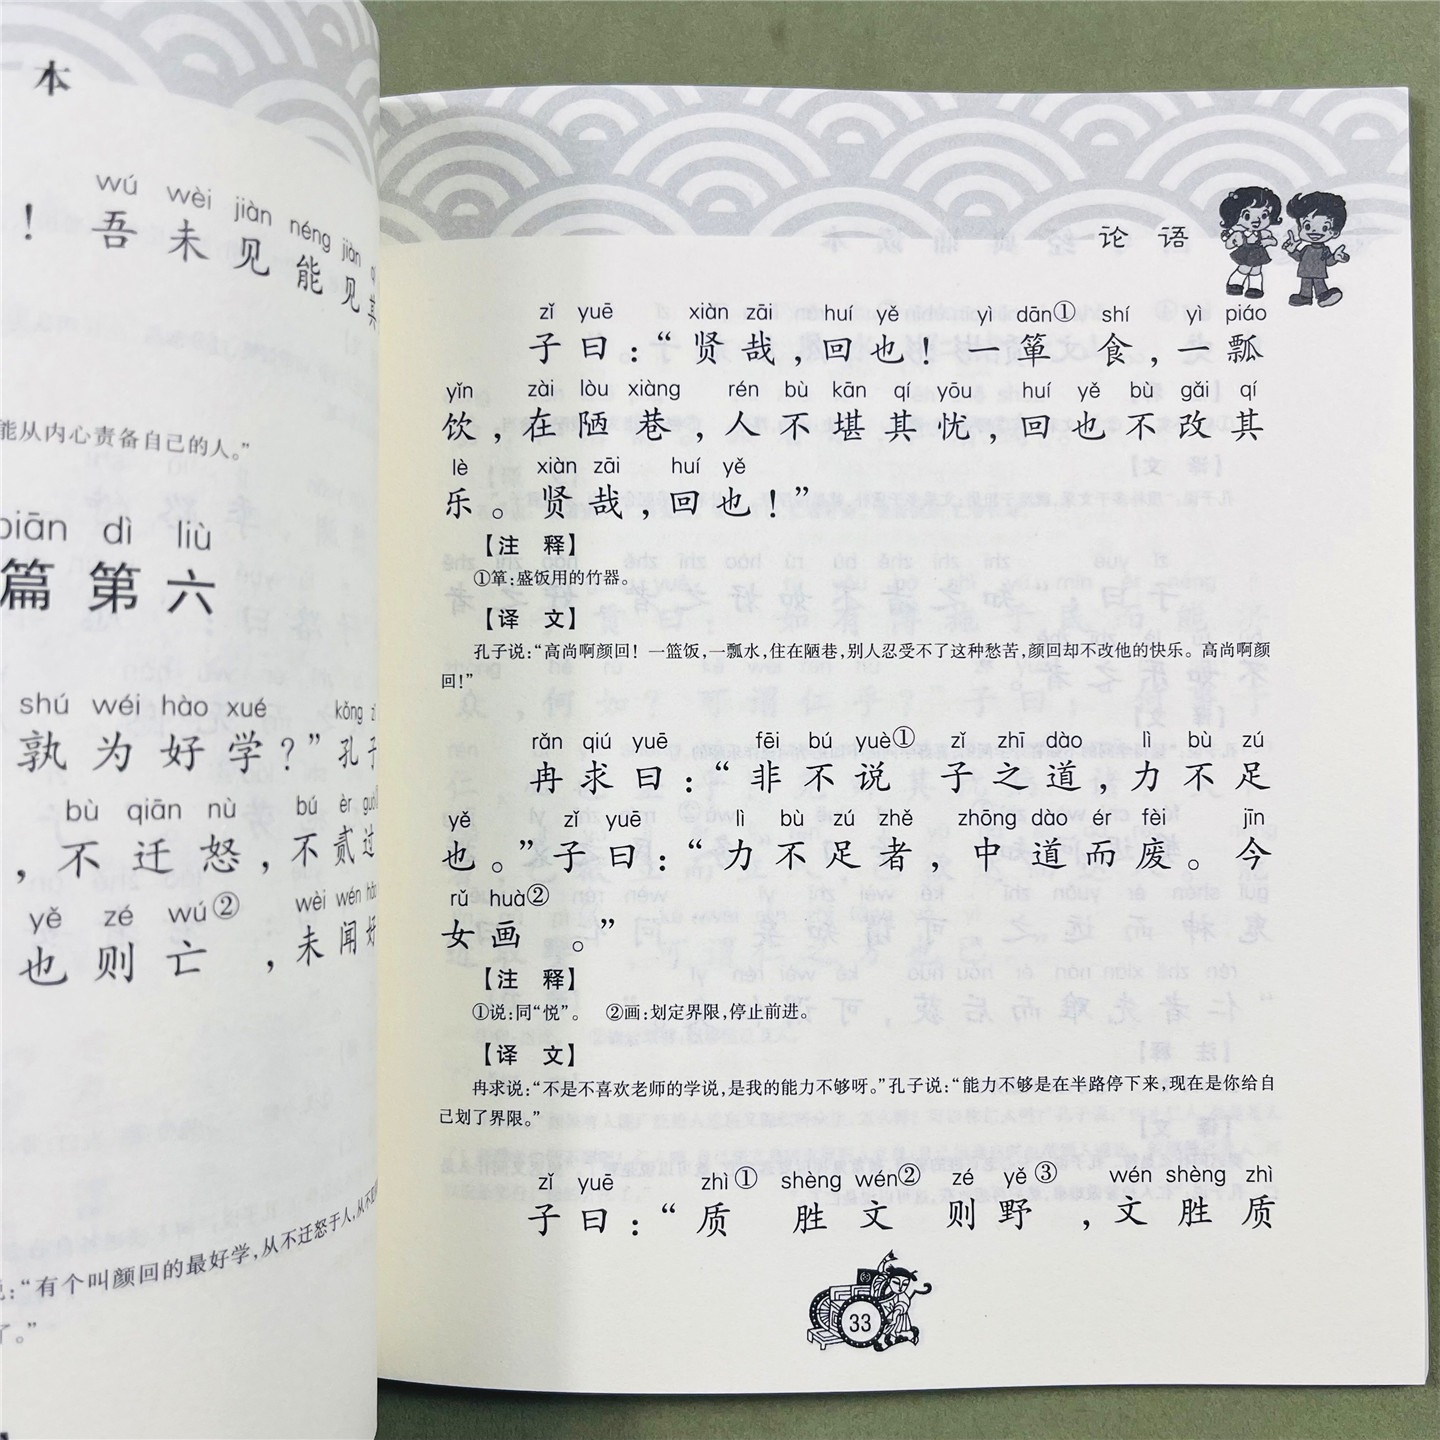 本
wú wèi jiàn néng jiàn
！吾未见能见其
能从内心责备自己的人。”
piān dì liù
篇第六
shú wéi hào xué kǒng
孰为好学？”孔子
bù qiān nù bú èr guò
，不迁怒，不贰过
yě zé wú② wèi wén hào
也则亡，未闻好
：“有个叫颜回的最好学，从不迁怒于人，从不
了。”
论语
zǐ yuē xiàn zāi huí yě yì dān① shí yì piáo
子曰：“贤哉，回也！一箪食，一瓢
yǐn zài lòu xiàng rén bù kān qí yōu huí yě bù gǎi qí
饮，在陋巷，人不堪其忧，回也不改其
lè xiàn zāi huí yě
乐。贤哉，回也！”
【注 释】
①箪：盛饭用的竹器。
【译 文】
孔子说：“高尚啊颜回！一篮饭，一瓢水，住在陋巷，别人忍受不了这种愁苦，颜回却不改他的快乐。高尚啊颜
回！”
rǎn qiú yuē fēi bú yuè① zǐ zhī dào lì bù zú
冉求曰：“非不说子之道，力不足
yě zǐ yuē lì bù zú zhě zhōng dào ér fèi jīn
也。”子曰：“力不足者，中道而废。今
rǔ huà②
女画。”
【注 释】
①说：同“悦”。 ②画：划定界限，停止前进。
【译 文】
冉求说：“不是不喜欢老师的学说，是我的能力不够呀。”孔子说：“能力不够是在半路停下来，现在是你给自
己划了界限。”
zǐ yuē zhì① shèng wén② zé yě③ wén shèng zhì
子曰：“质胜文则野，文胜质
33